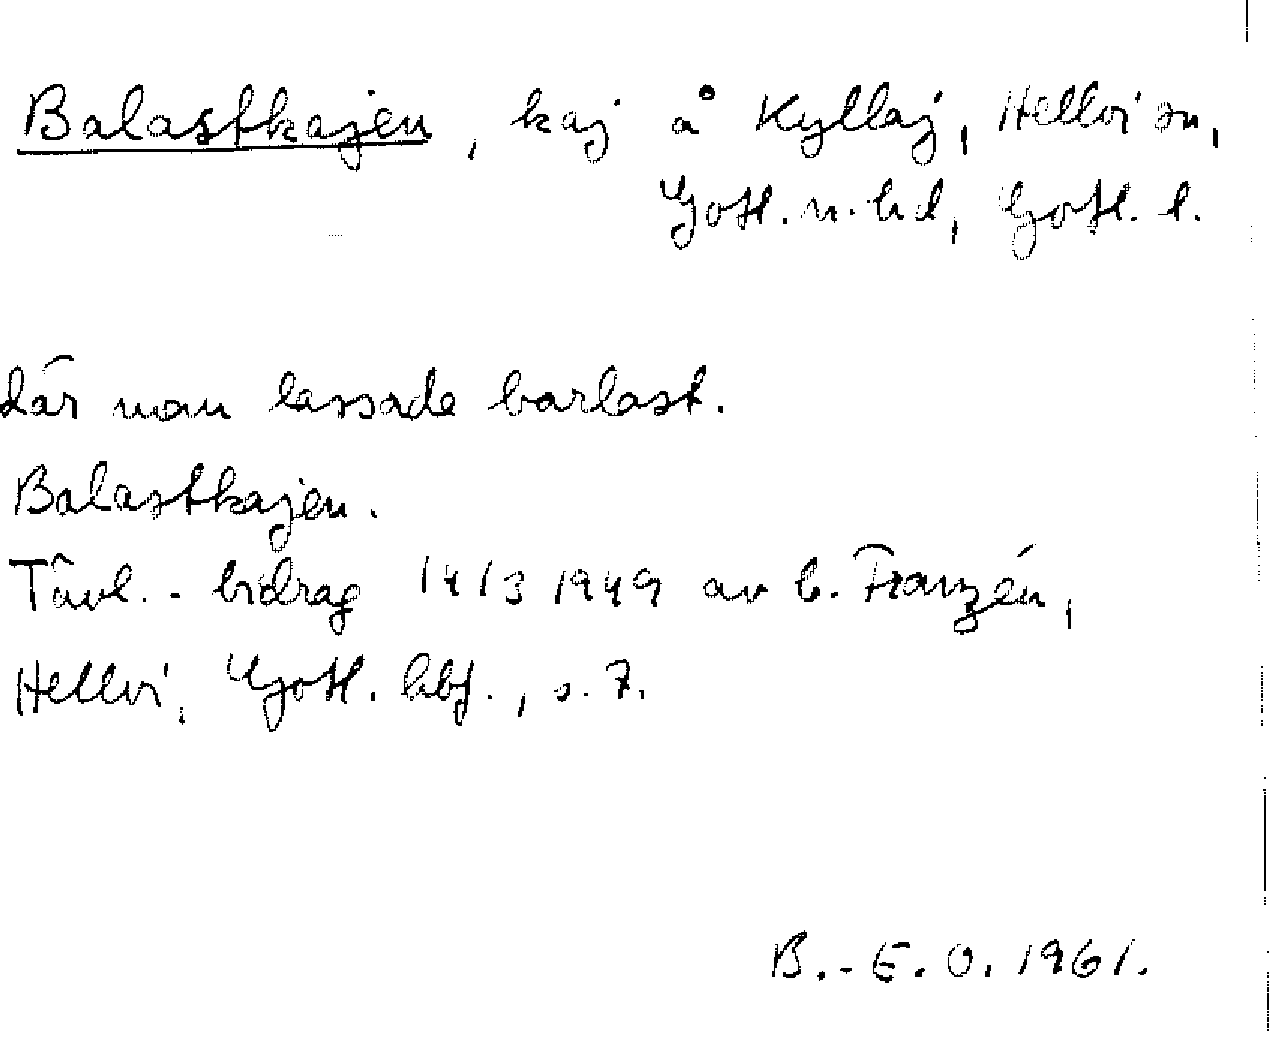 Balastkajen, kaj å Kyllaj, Hellvi sn,
Gotl. n. hd, Gotl. l.
där man lassade barlast.
Balastkajen.
Tävl.-bidrag 14/3 1949 av b. Franzén,
Hellvi, Gotl. hbf., s. 7.
B.-E. O. 1961.